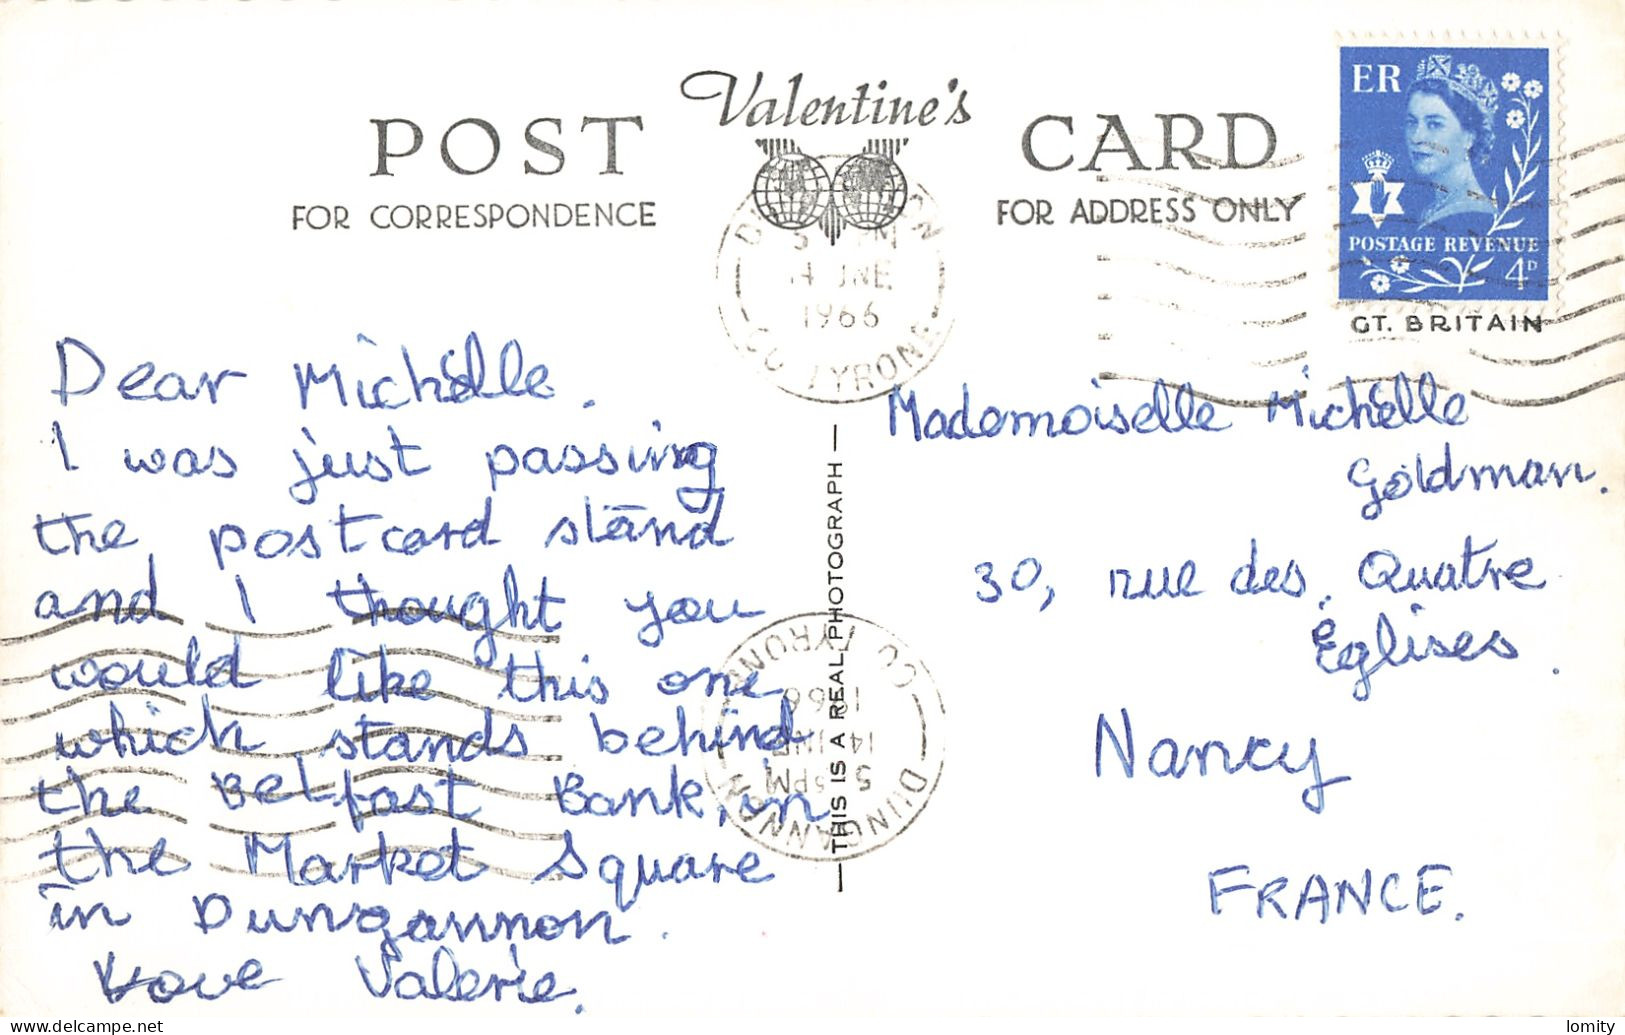 POST
Valentine's
CARD
FOR CORRESPONDENCE
FOR ADDRESS ONLY
ER
POSTAGE REVENUE
4D
GT. BRITAIN
5 PM
14 JNE
1966
CO TYRONE
Dear Michèlle.
I was just passing
the postcard stand
and I thought you
would like this one
which stands behind
the Belfast Bank, in
the Market Square
in Dungannon.
Love Valerie.
THIS IS A REAL PHOTOGRAPH
DUNGANNON
CO TYRONE
5 PM
14 JNE
1966
Mademoiselle Michèlle
Goldman.
30, rue des Quatre
Églises.
Nancy
FRANCE.
delcampe.net
lomity